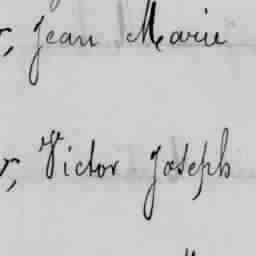 r, Jean Marie
r, Victor Joseph